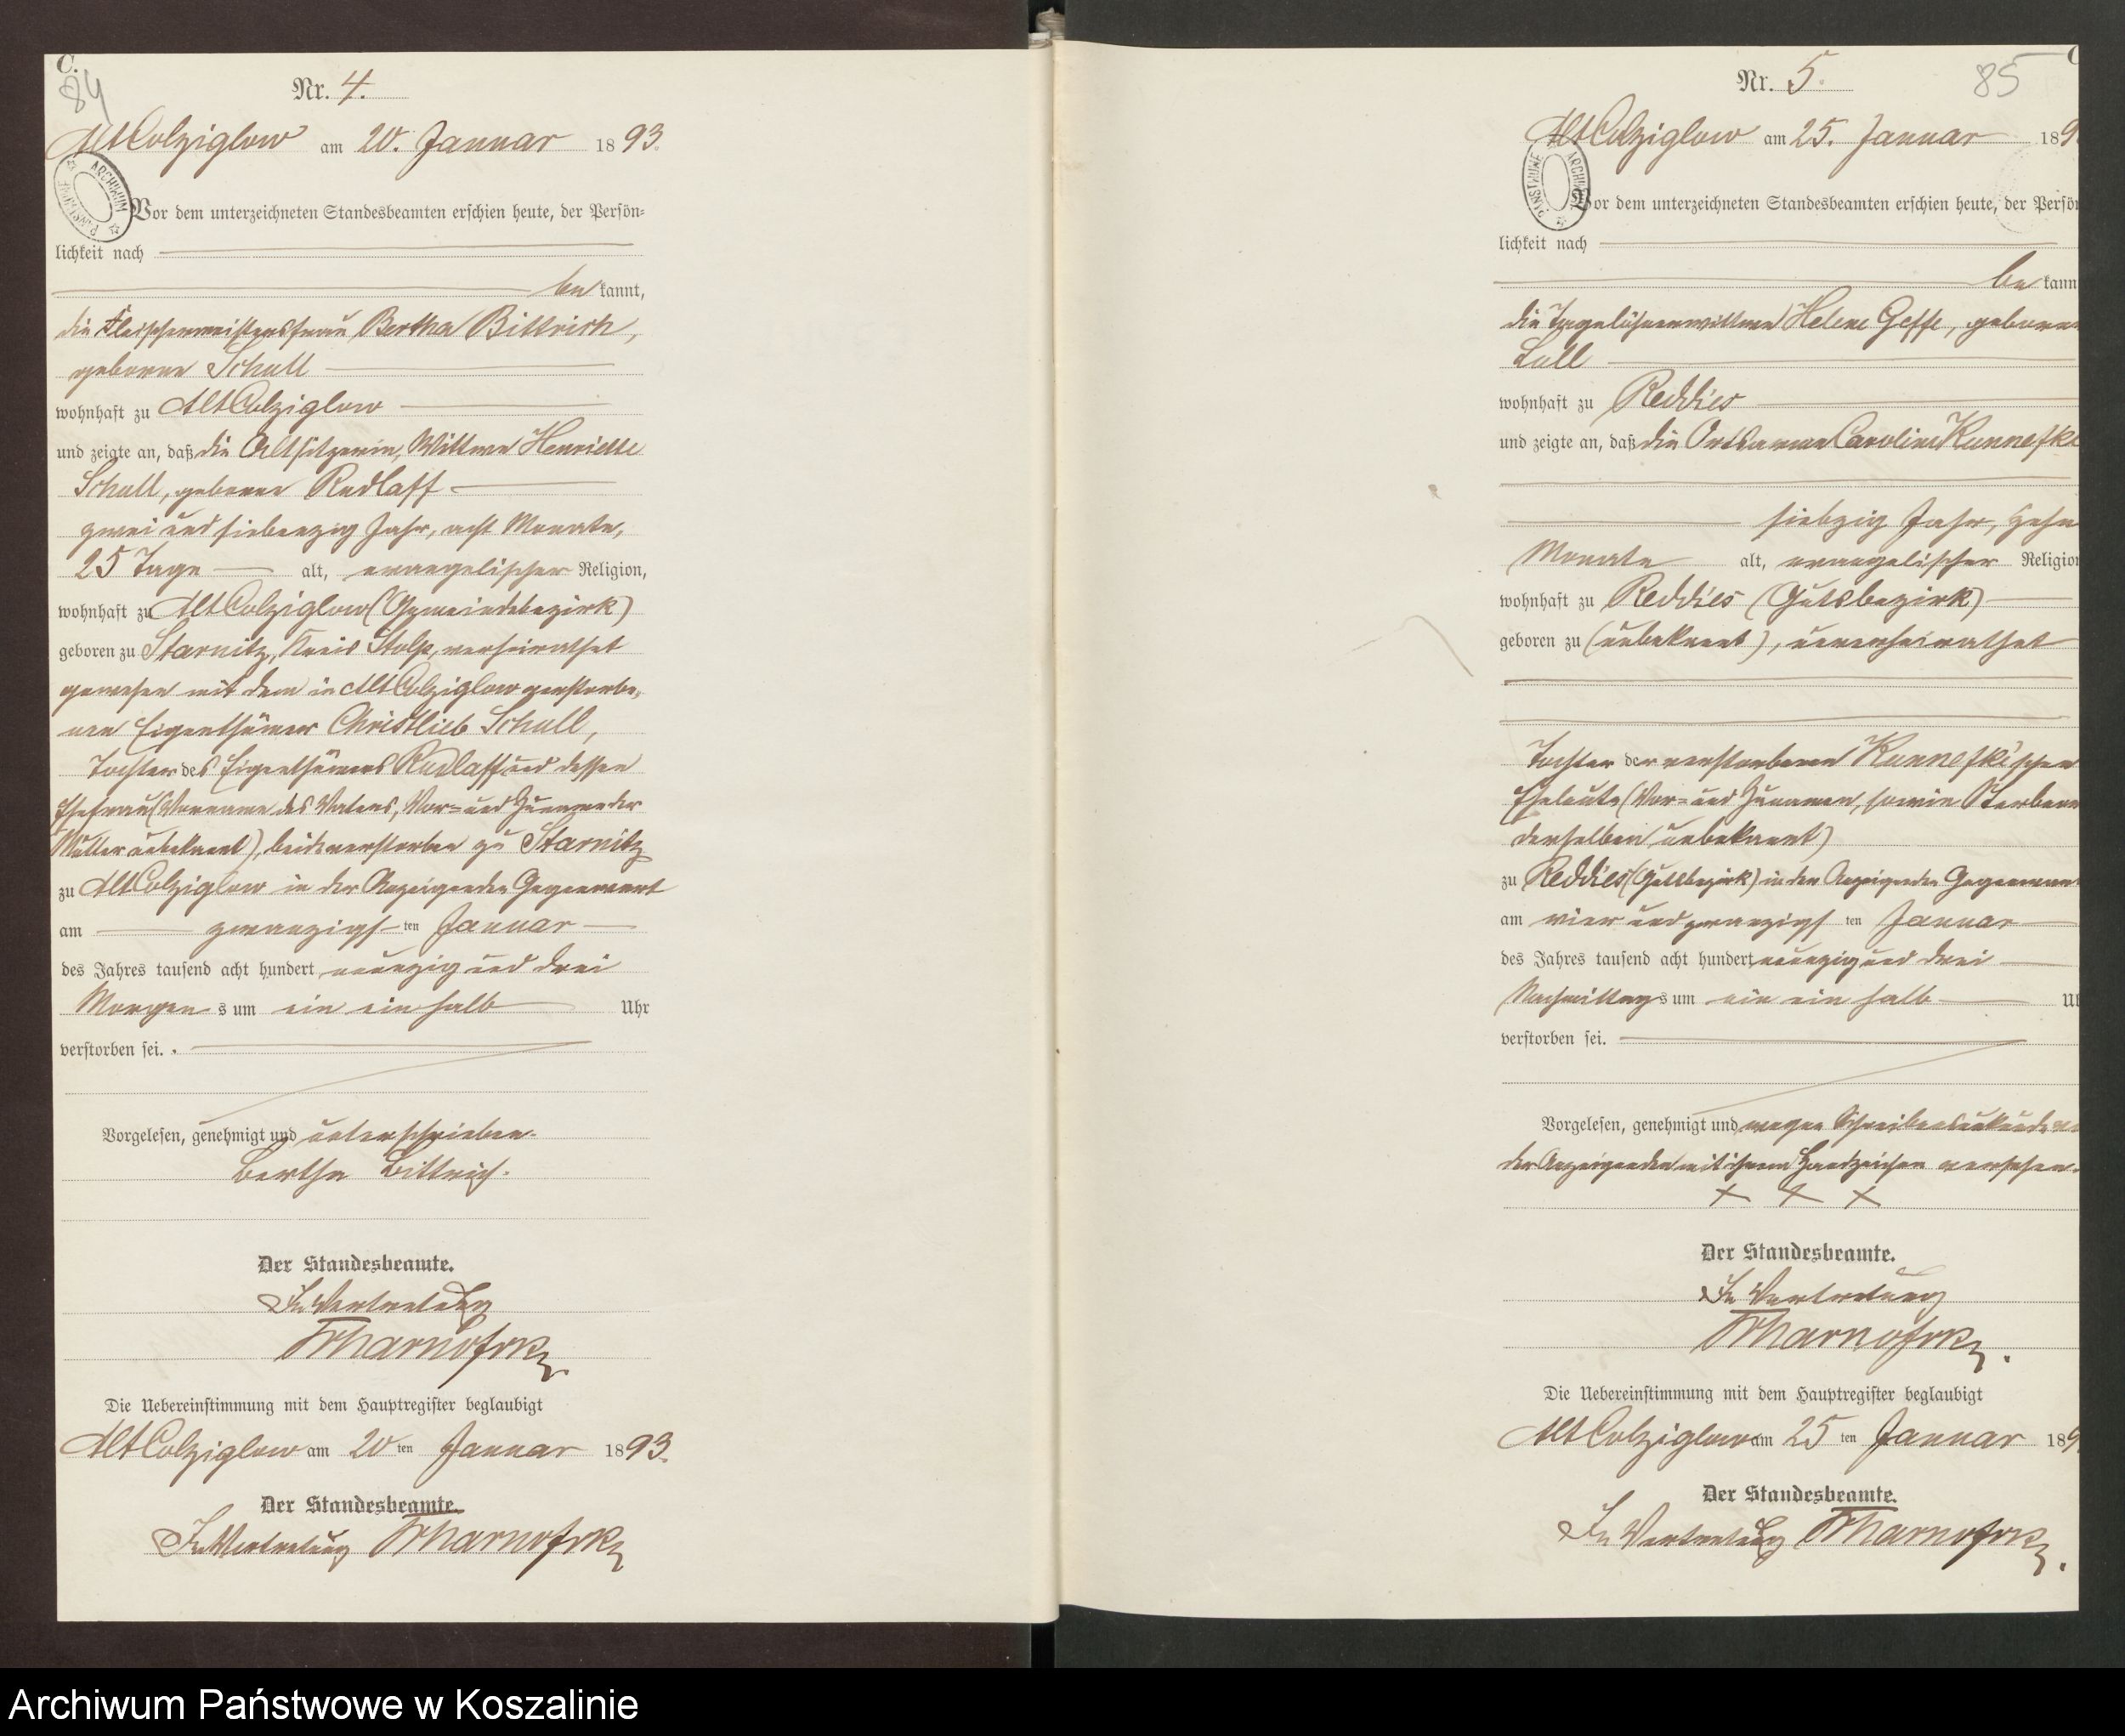 C.
84
Nr. 4.
Alt Colziglow am 20. Januar 1893.
ARCHIWUM PAŃSTWOWE
Vor dem unterzeichneten Standesbeamten erschien heute, der Persön-
lichkeit nach
be kannt,
die Fleischermeistersfrau Bertha Bittrich,
geborene Schull
wohnhaft zu Alt Colziglow
und zeigte an, daß die Altsitzerin, Wittwe Henriette
Schull, geborne Radlaff
zwei und siebenzig Jahr, acht Monate,
25 Tage alt, evangelischer Religion,
wohnhaft zu Alt Colziglow (Gemeindebezirk)
geboren zu Starnitz, Kreis Stolp, verheirathet
gewesen mit dem in Alt Colziglow verstorbe-
nen Eigenthümer Christlieb Schull,
Tochter des Eigenthümers Radlaff und dessen
Ehefrau (Vorname des Vaters, Vor- und Zuname der
Mutter unbekannt), beide verstorben zu Starnitz
zu Alt Colziglow in der Anzeigenden Gegenwart
am zwanzigsten Januar
des Jahres tausend acht hundert neunzig und drei
Morgens um ein ein halb Uhr
verstorben sei.
Vorgelesen, genehmigt und unterschrieben.
Bertha Bittrich.
Der Standesbeamte.
In Vertretung
Die Uebereinstimmung mit dem Hauptregister beglaubigt
Alt Colziglow am 20ten Januar 1893.
Der Standesbeamte.
In Vertretung
C
85
Nr. 5.
Alt Colziglow am 25. Januar 189
ARCHIWUM PAŃSTWOWE
Vor dem unterzeichneten Standesbeamten erschien heute, der Persön
lichkeit nach
be kann
die Tagelöhnerwittwe Helene Geffe, geborene
Lull
wohnhaft zu Reddies
und zeigte an, daß die Ortsarme Caroline Kunnefke
siebzig Jahr, zehn
Monate alt, evangelischer Religion
wohnhaft zu Reddies (Gutsbezirk)
geboren zu (unbekannt), unverheirathet
Tochter der verstorbenen Kunnefke'schen
Eheleute (Vor- und Zunamen, sowie Sterbeort
derselben unbekannt)
zu Reddies (Gutsbezirk) in der Anzeigenden Gegenwart
am vier und zwanzigsten Januar
des Jahres tausend acht hundert neunzig und drei
Nachmittags um ein ein halb Uh
verstorben sei.
Vorgelesen, genehmigt und wegen Schreibensunkunde von
der Anzeigenden mit ihrem Handzeichen versehen.
+ + +
Der Standesbeamte.
In Vertretung
Die Uebereinstimmung mit dem Hauptregister beglaubigt
Alt Colziglow am 25ten Januar 189
Der Standesbeamte.
In Vertretung
Archiwum Państwowe w Koszalinie